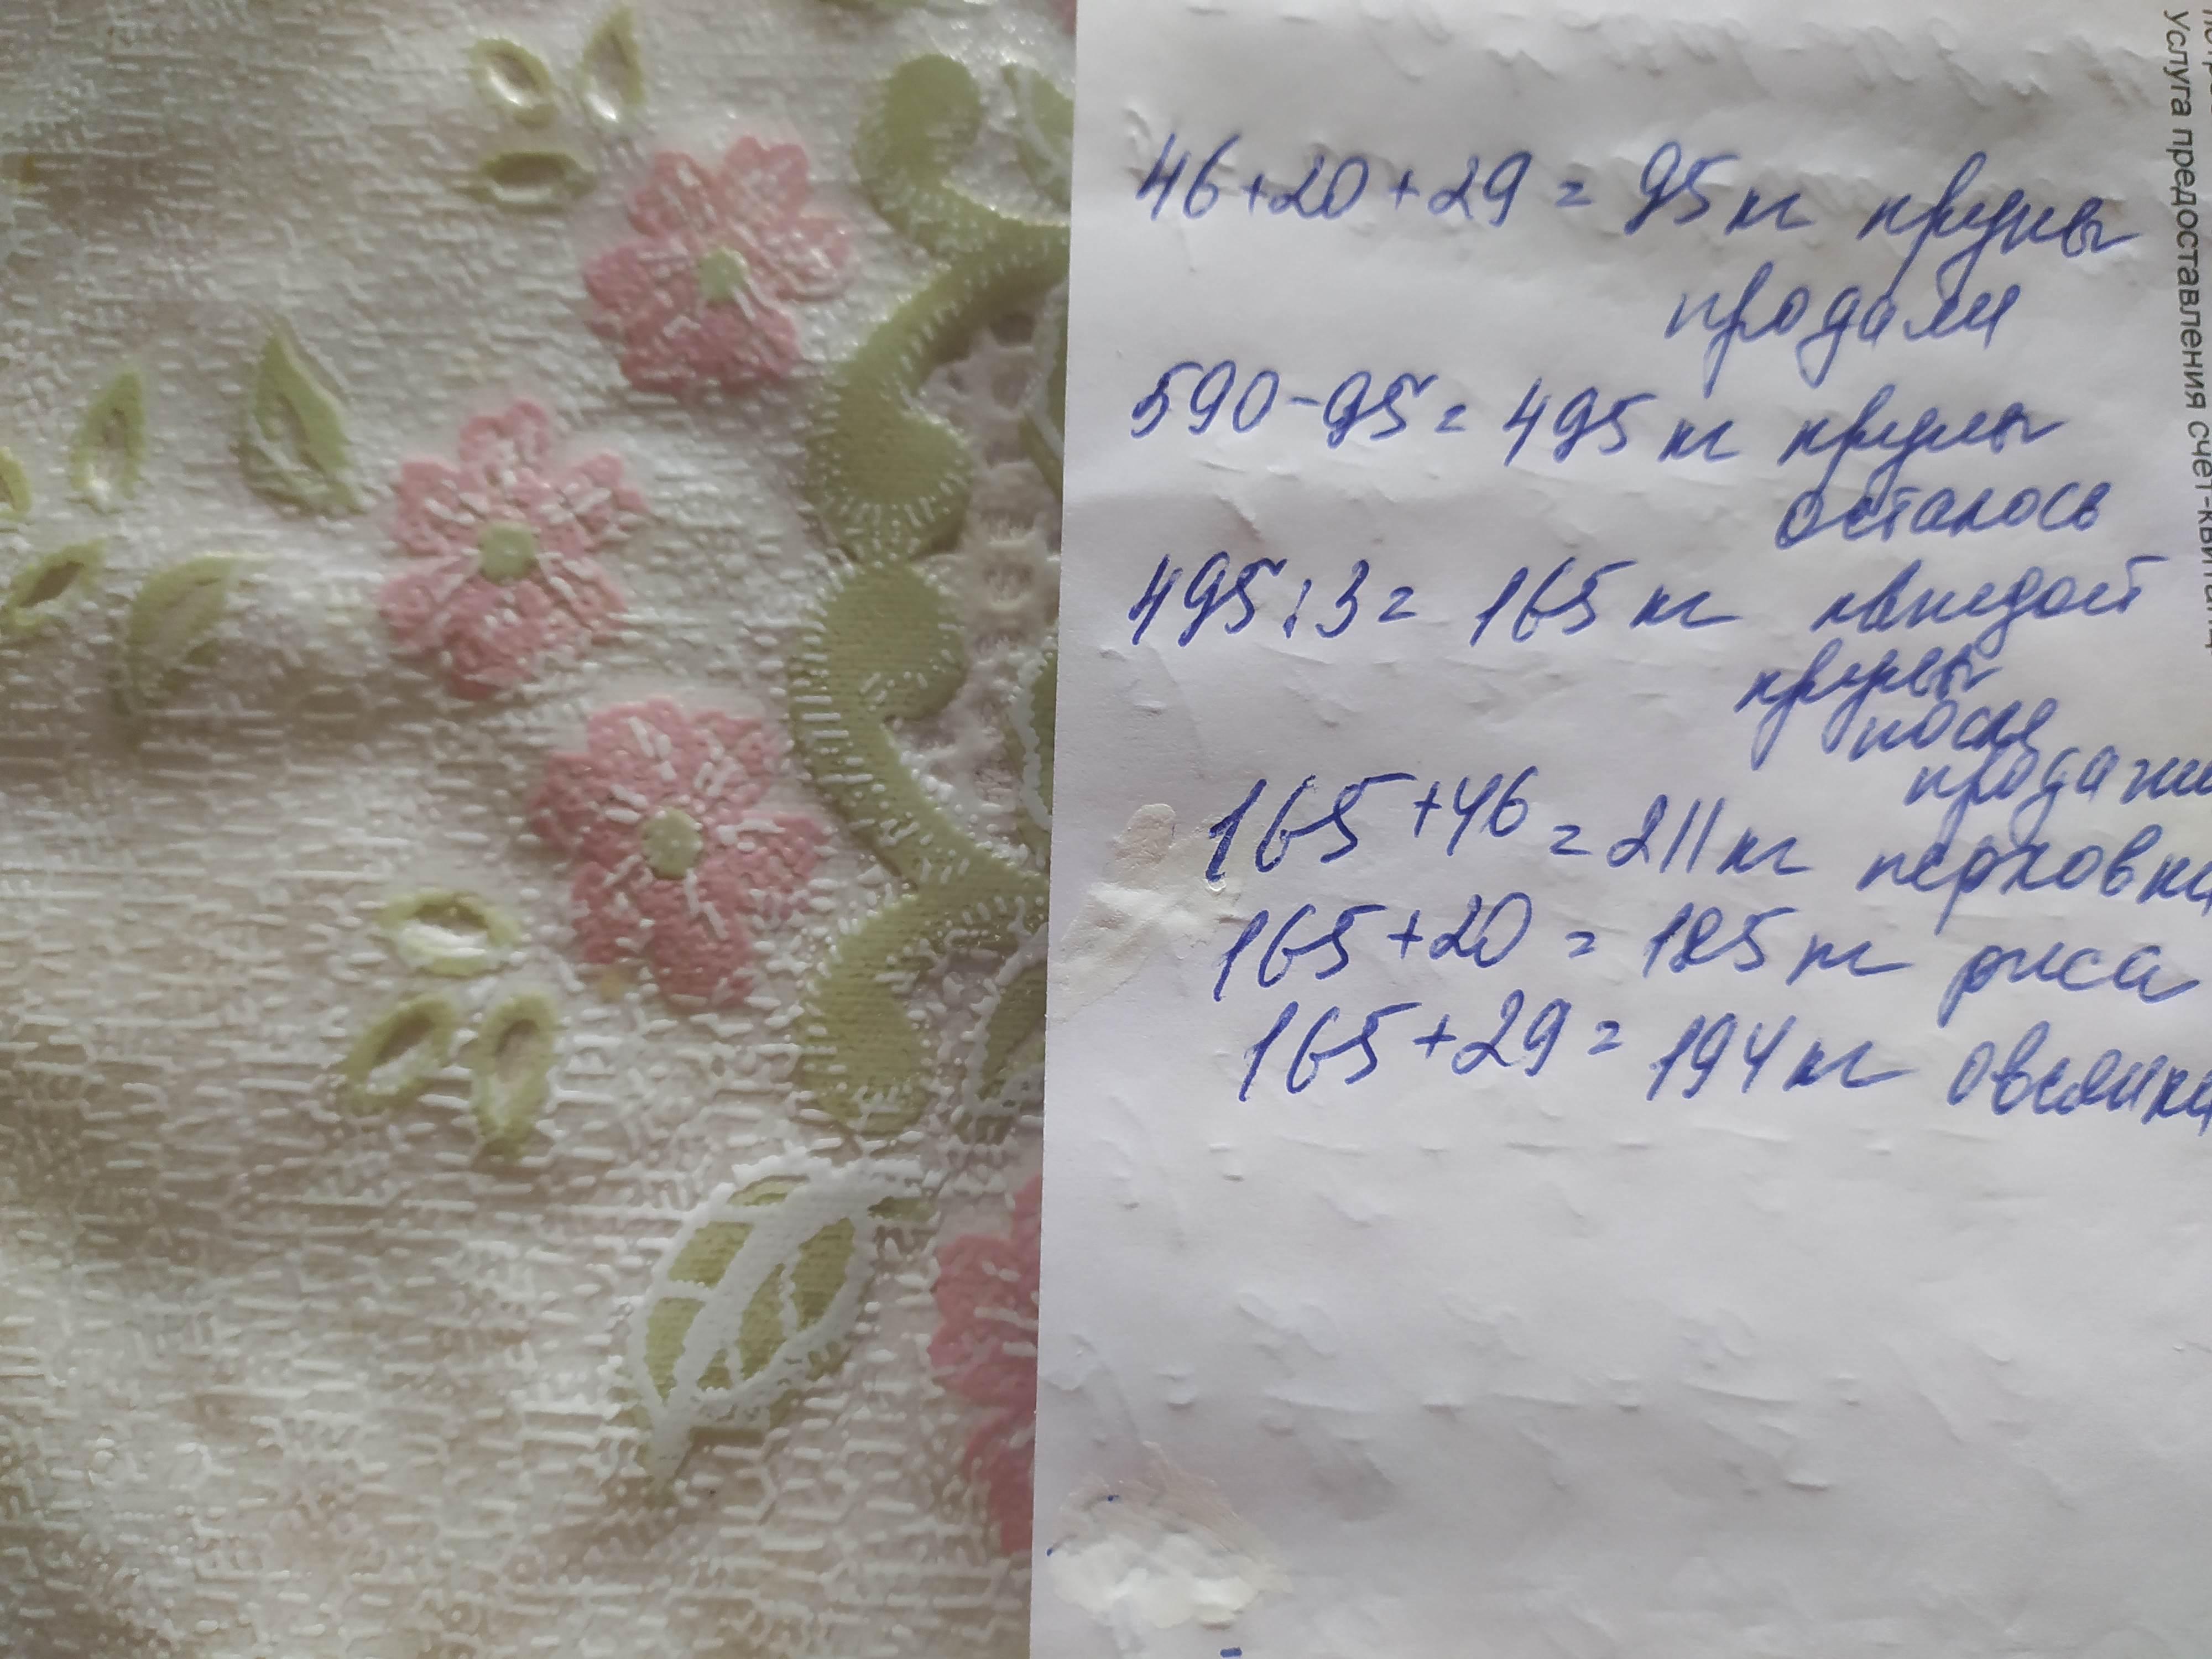 46+20+29=95 кг крупы
продали
590-95=495 кг крупы
осталось
495:3=165 кг каждой
крупы
после
продажи
165+46=211 кг перловки
165+20=185 кг риса
165+29=194 кг овсянки
Услуга предоставления счет-квитанц